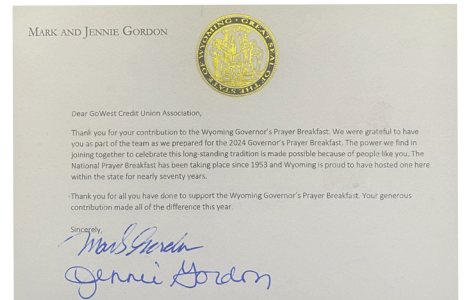 MARK AND JENNIE GORDON
GREAT SEAL OF THE STATE OF WYOMING
Dear GoWest Credit Union Association,
Thank you for your contribution to the Wyoming Governor's Prayer Breakfast. We were grateful to have
you as part of the team as we prepared for the 2024 Governor's Prayer Breakfast. The power we find in
joining together to celebrate this long-standing tradition is made possible because of people like you. The
National Prayer Breakfast has been taking place since 1953 and Wyoming is proud to have hosted one here
within the state for nearly seventy years.
Thank you for all you have done to support the Wyoming Governor's Prayer Breakfast. Your generous
contribution made all of the difference this year.
Sincerely,
Mark Gordon
Jennie Gordon